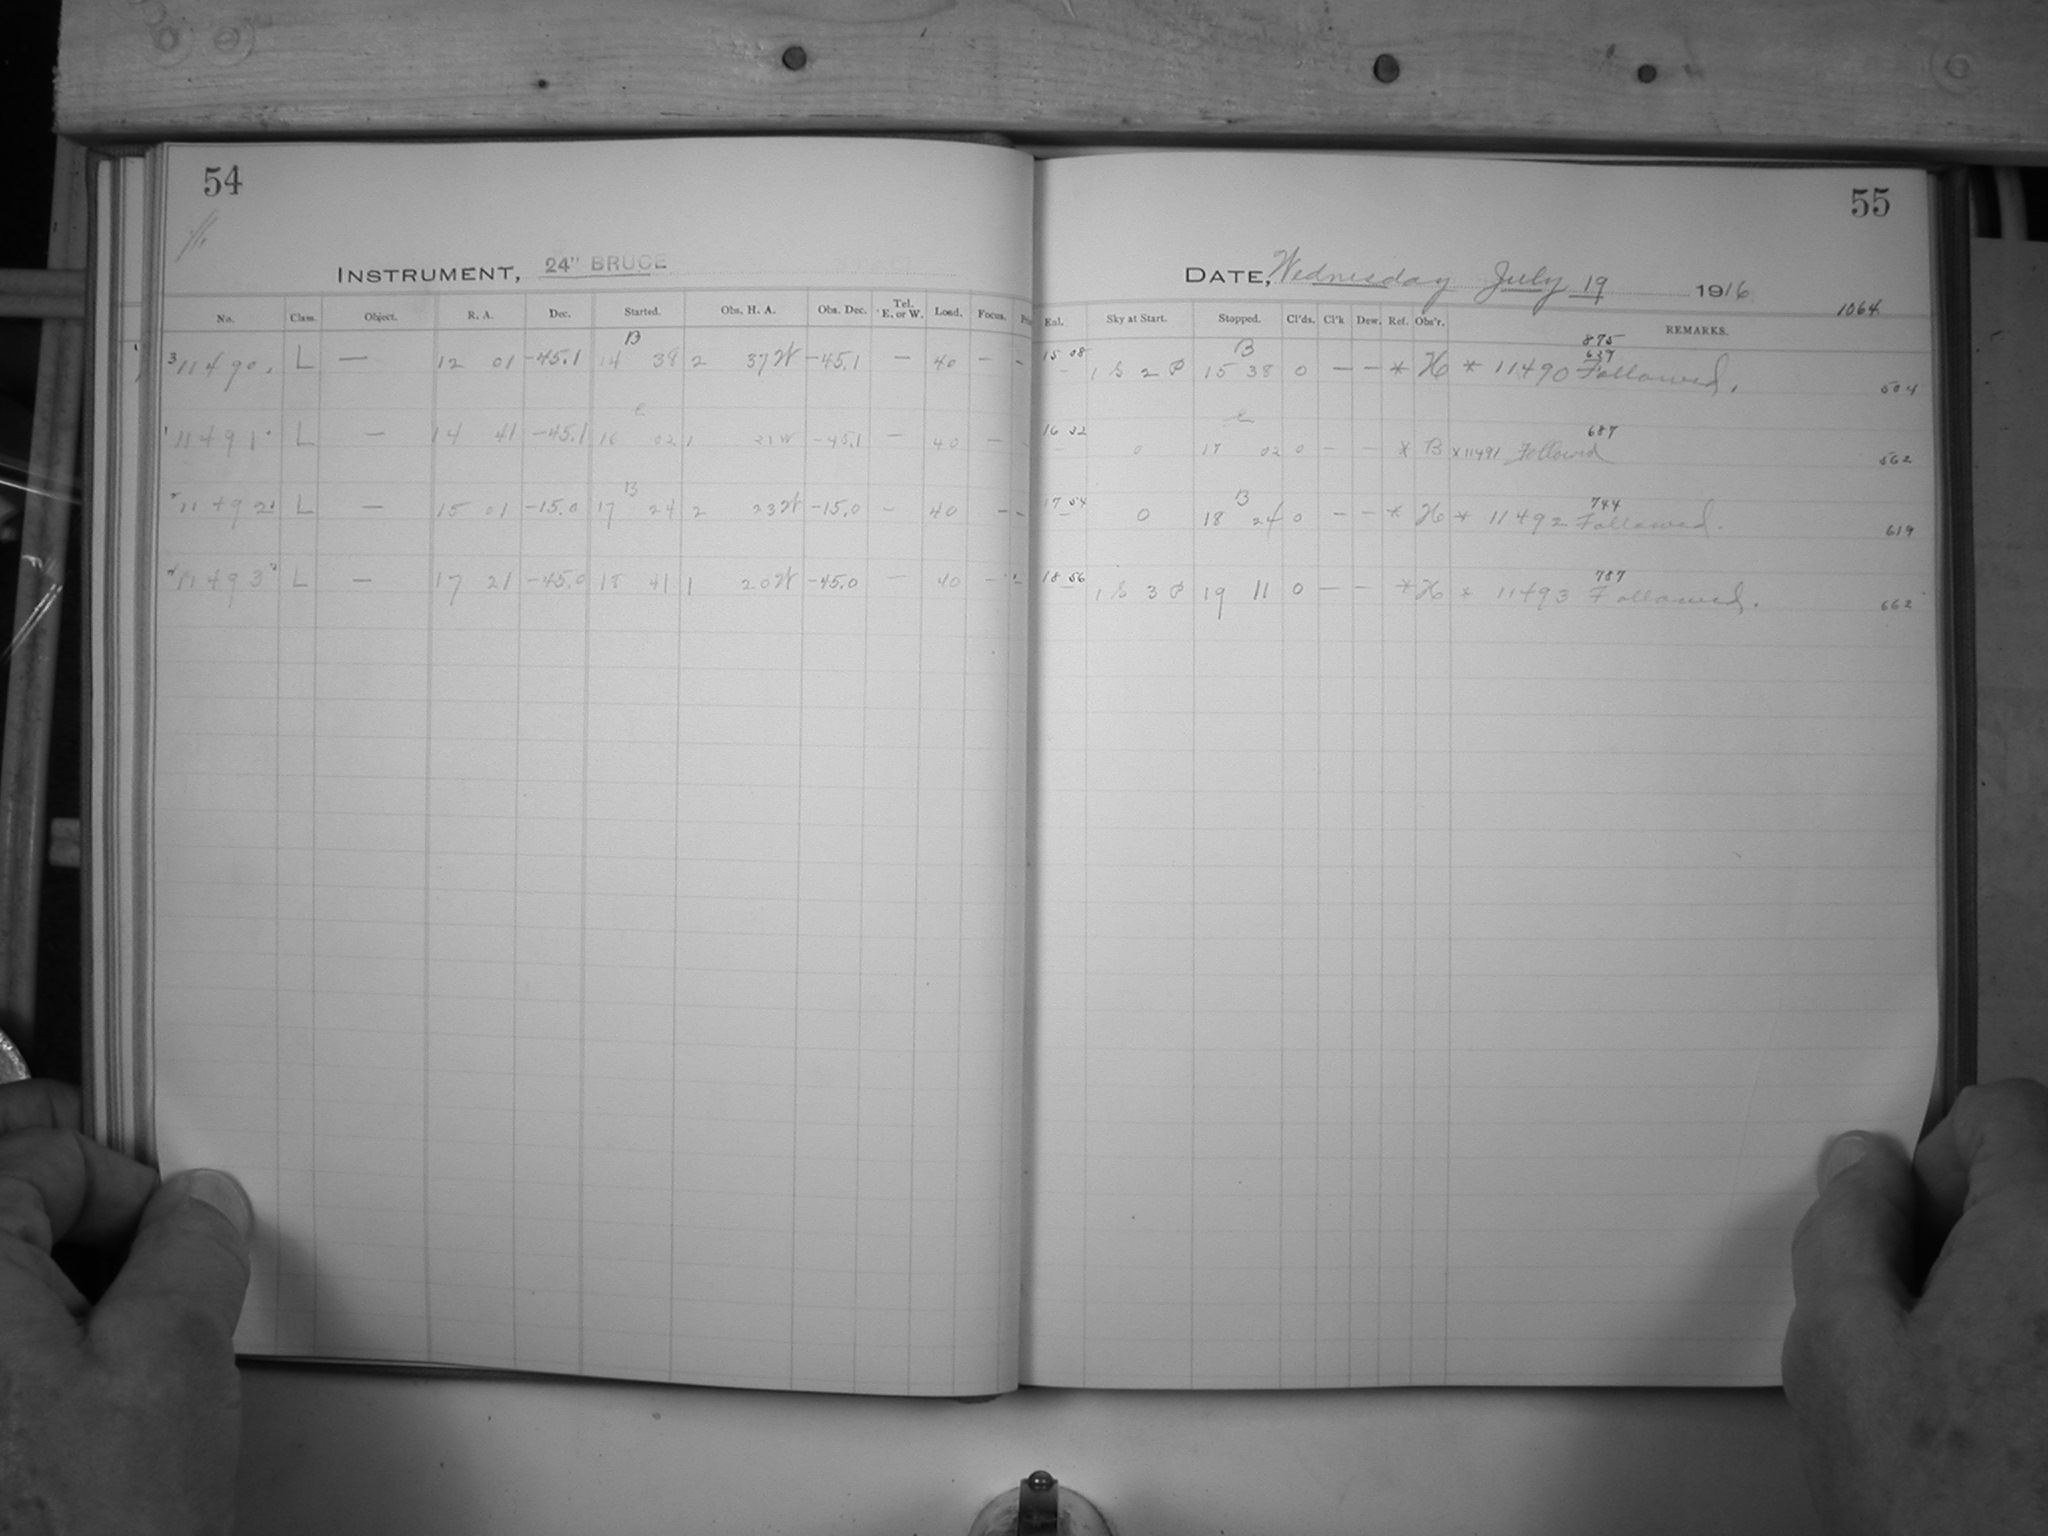 54
INSTRUMENT, 24" BRUCE
No. Class. Object. R. A. Dec. Started. Obs. H. A. Obs. Dec. Tel. E. or W. Load. Focus.
B
3 11490. L — 12 01 -45.1 14 38 2 37 W -45.1 — 40 — —
e
1 11491. L — 14 41 -45.1 16 02 1 21 W -45.1 — 40 — -
B
11492. L — 15 01 -15.0 17 24 2 23 W -15.0 - 40 - -
11493 L — 17 21 -45.0 18 41 1 20 W -45.0 — 40 -
55
DATE, Wednesday July 19 1916
1064
Eal. Sky at Start. Stopped. Cl'ds. Cl'k Dew. Ref. Obs'r. REMARKS.
875
15 08 B 637
1 S 2 P 15 38 0 — — * H * 11490 Followed. 504
16 32 e 687
0 17 02 0 - - * B * 11491 Followed 562
17 54 B 744
0 18 24 0 — — * H * 11492 Followed. 619
18 56 787
1 S 3 P 19 11 0 — — * H * 11493 Followed. 662